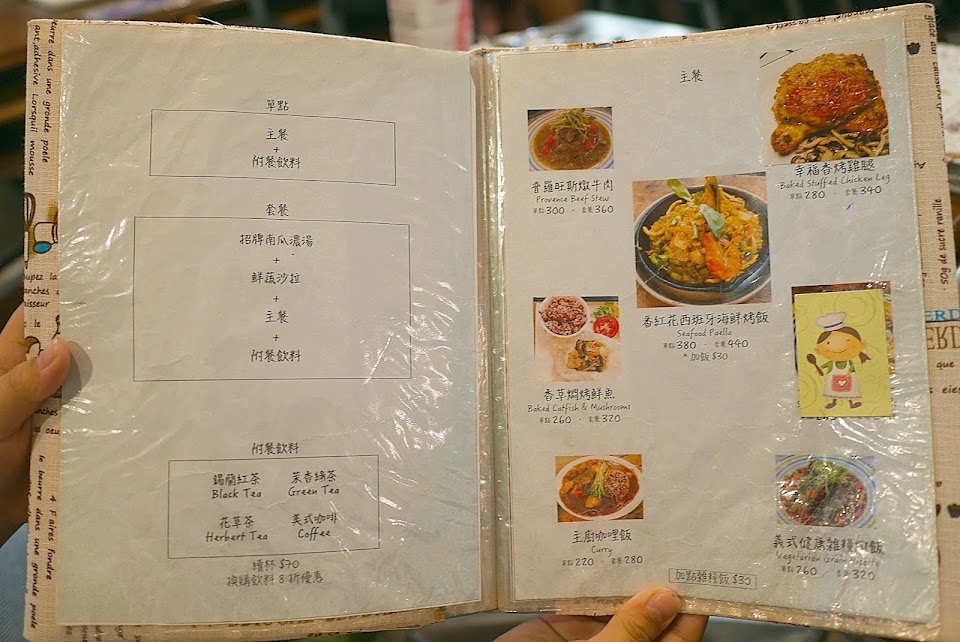 單點
主餐
+
附餐飲料
套餐
招牌南瓜濃湯
+
鮮蔬沙拉
+
主餐
+
附餐飲料
附餐飲料
錫蘭紅茶 茉香綠茶
Black Tea Green Tea
花草茶 美式咖啡
Herbert Tea Coffee
續杯 $70
換購飲料 8 折優惠
主餐
普羅旺斯燉牛肉
Provence Beef Stew
單點 300 · 套餐 360
幸福香烤雞腿
Baked Stuffed Chicken Leg
單點 280 · 套餐 340
香紅花西班牙海鮮烤飯
Seafood Paella
單點 380 · 套餐 440
*加飯 $30
香草焗烤鮮魚
Baked Catfish & Mushrooms
單點 260 · 套餐 320
主廚咖哩飯
Curry
單點 220 · 套餐 280
義式健康雜糧燉飯
Vegetarian Grain Risotto
單點 260 · 套餐 320
加點雜糧飯 $30
eurre dans une gronde poele
ant,adhesive Lorsquil mousse
le beurre dans une gronde poele
4 Faires fondre
50g de sucre ranille